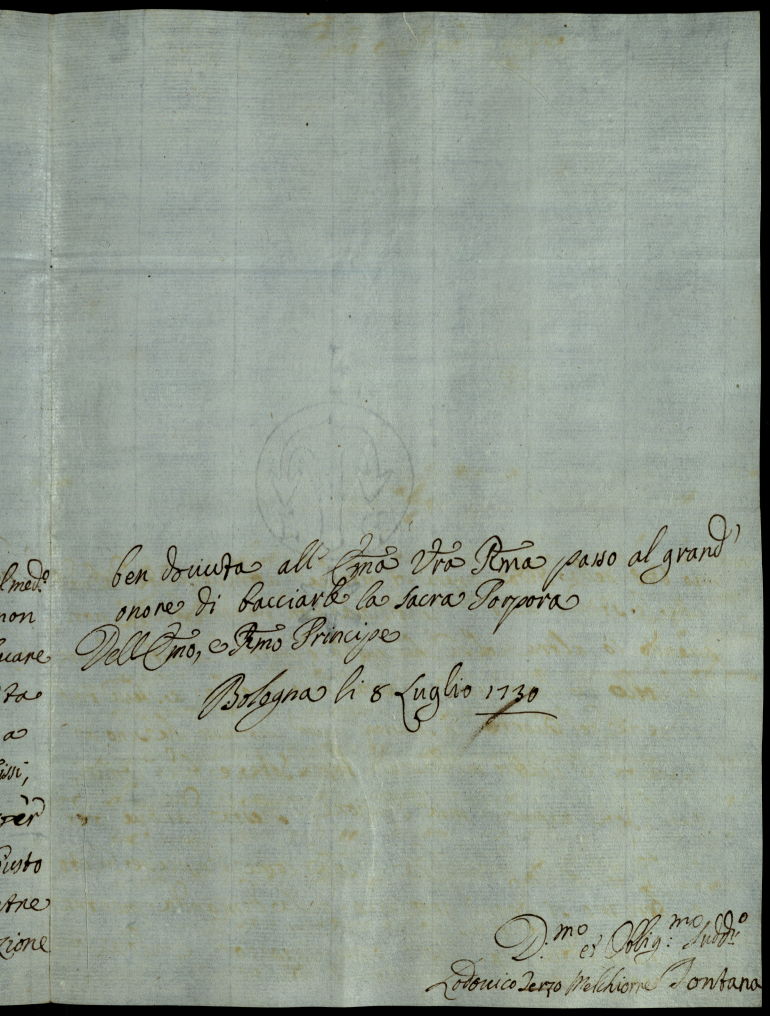 lmed:º
non
uare
ta
a
issi,
per
Giusto
tre
zione
ben dovuta all' Ema Vra Rma passo al grand'
onore di bacciarle la sacra Porpora
Dell Emo, e Rmo Principe
Bologna li 8 Luglio 1730
D.mo et Obblig:mo Sudd:to
Lodovico Terzo Melchiorre Fontana